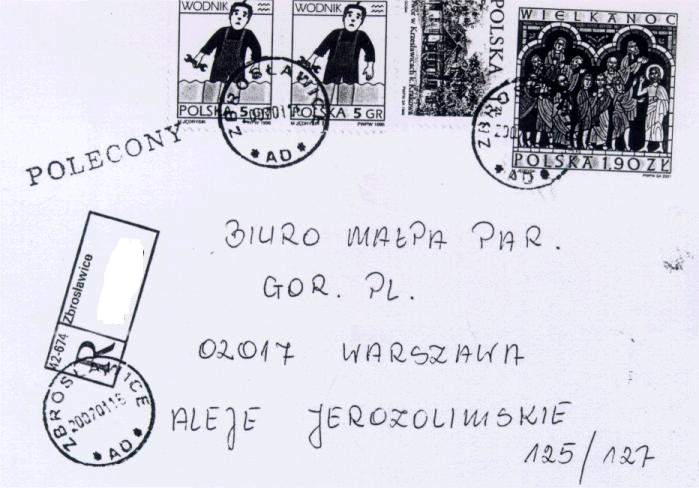 WODNIK WODNIK
POLSKA 5 GR POLSKA 5 GR
POLSKA
WIELKANOC
POLSKA 1.90 ZŁ
ZBROSŁAWICE
*AD*
*AD*
POLECONY
R
42-674 Zbrosławice
ZBROSŁAWICE
20070116
*AD*
BIURO MAŁPA PAR.
GOR. PL.
02017 WARSZAWA
ALEJE JEROZOLIMSKIE
125/127